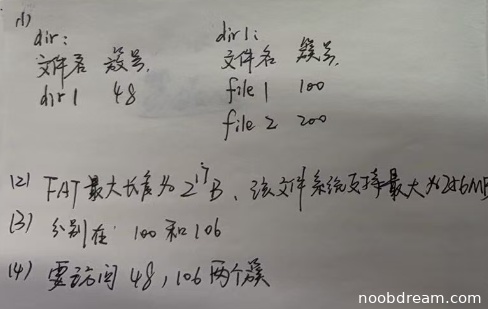 (1)
dir: dir1:
文件名 簇号, 文件名 簇号,
dir1 48 file1 100
file2 200
(2) FAT最大长度为2^17B、该文件系统支持最大为256MB
(3) 分别在 100和106
(4) 要访问 48,106两个簇
noobdream.com